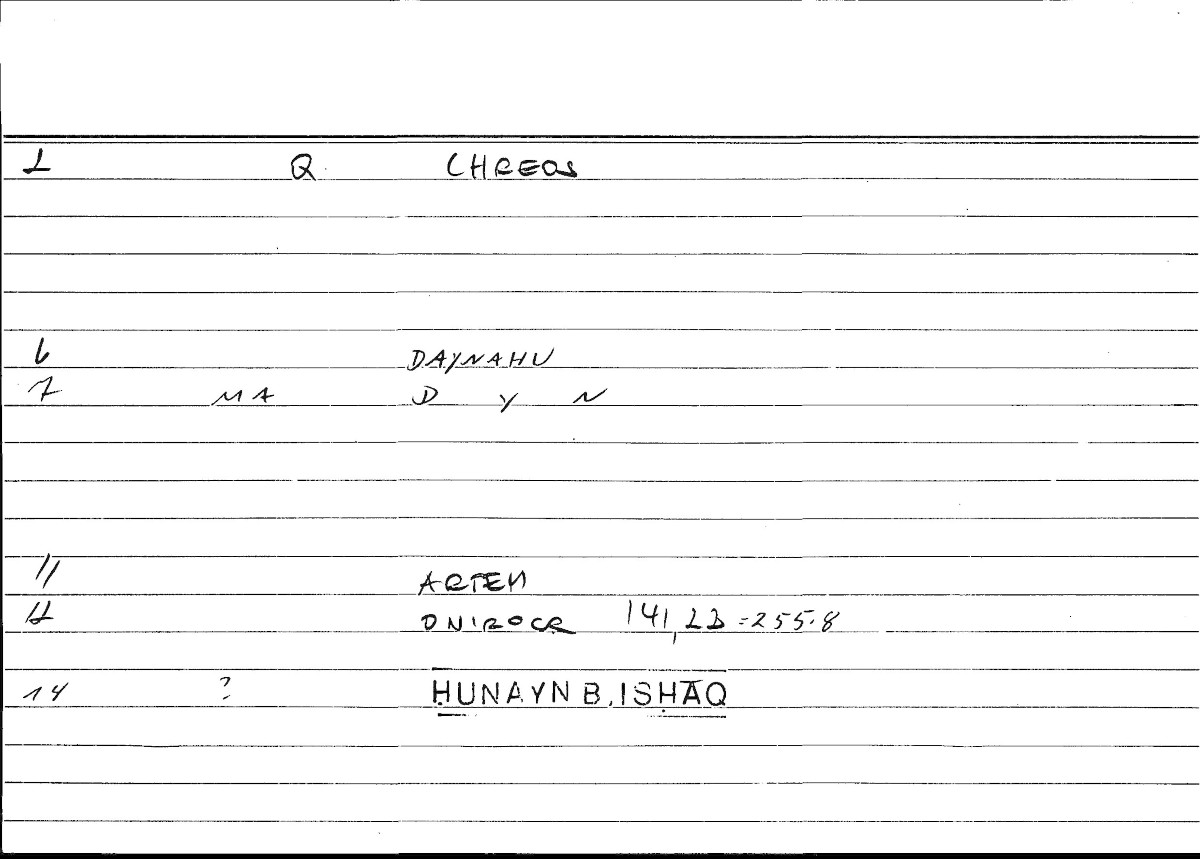 1 Q CHREOS
6 DAYNAHU
7 MA D Y N
11 ARTEM
12 ONIROCR 141, =255.8
14 ? ḤUNAYN B. ISḤĀQ